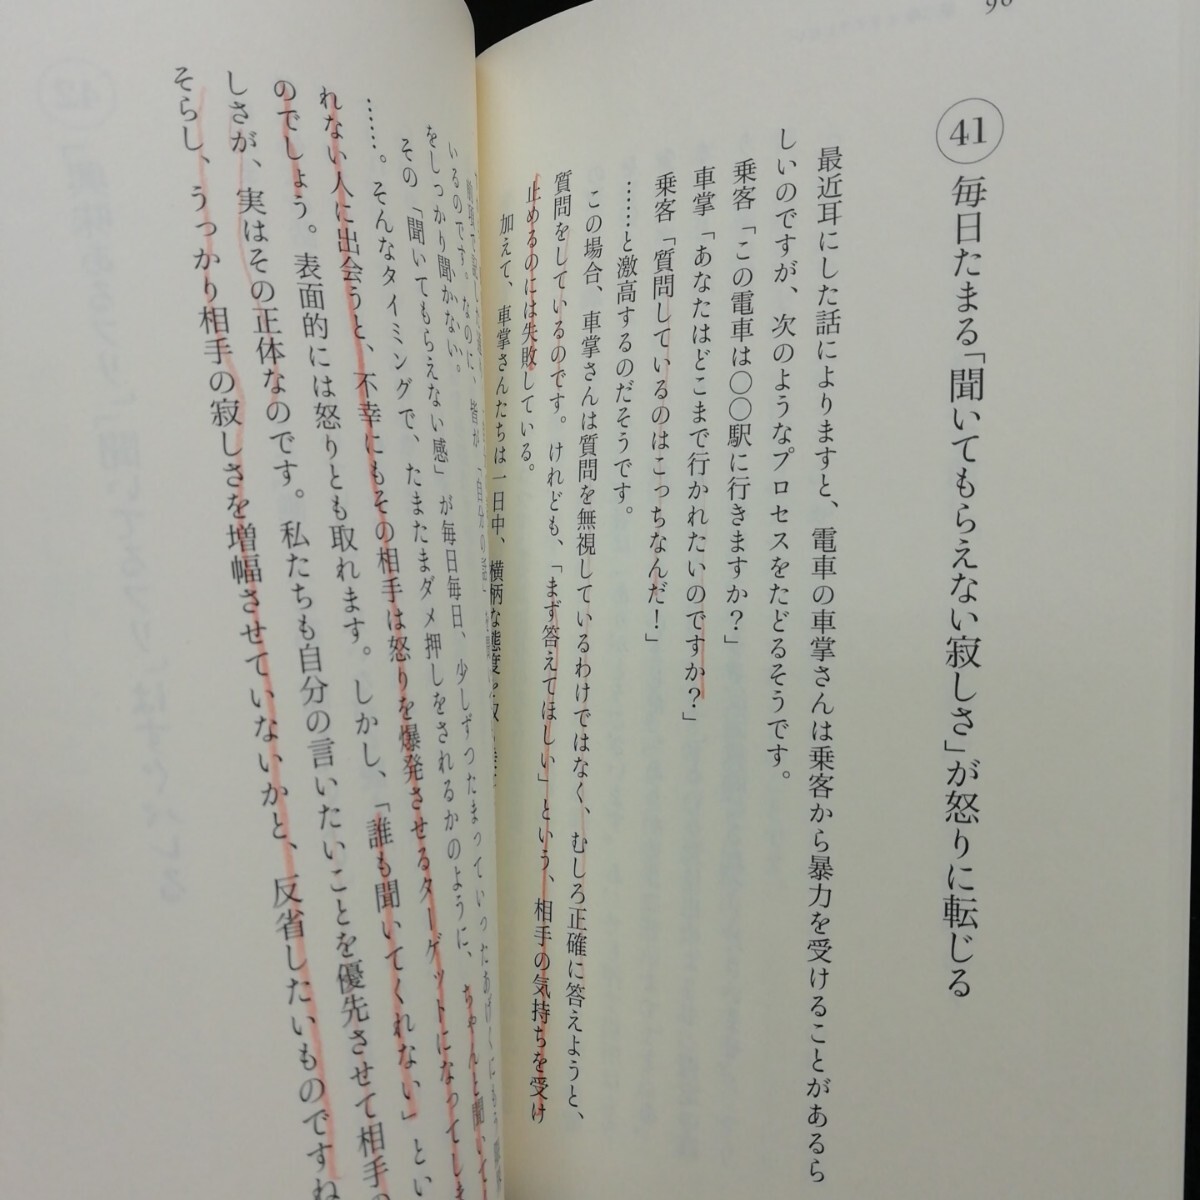 41
毎日たまる「聞いてもらえない寂しさ」が怒りに転じる
最近耳にした話によりますと、電車の車掌さんは乗客から暴力を受けることがあるら
しいのですが、次のようなプロセスをたどるそうです。
乗客「この電車は〇〇駅に行きますか?」
車掌「あなたはどこまで行かれたいのですか?」
乗客「質問しているのはこっちなんだ!」
……と激高するのだそうです。
この場合、車掌さんは質問を無視しているわけではなく、むしろ正確に答えようと、
質問をしているのです。けれども、「まず答えてほしい」という、相手の気持ちを受け
止めるのには失敗している。
加えて、車掌さんたちは一日中、横柄な態度を
いるのです。なのに、皆が「自分の話」
をしっかり聞かない。
その「聞いてもらえない感」が毎日毎日、少しずつたまっていったあげくに
……。そんなタイミングで、たまたまダメ押しをされるかのように、ちゃんと聞いて
れない人に出会うと、不幸にもその相手は怒りを爆発させるターゲットになってしま
のでしょう。表面的には怒りとも取れます。しかし、「誰も聞いてくれない」とい
しさが、実はその正体なのです。私たちも自分の言いたいことを優先させて相手の
そらし、うっかり相手の寂しさを増幅させていないかと、反省したいものですね